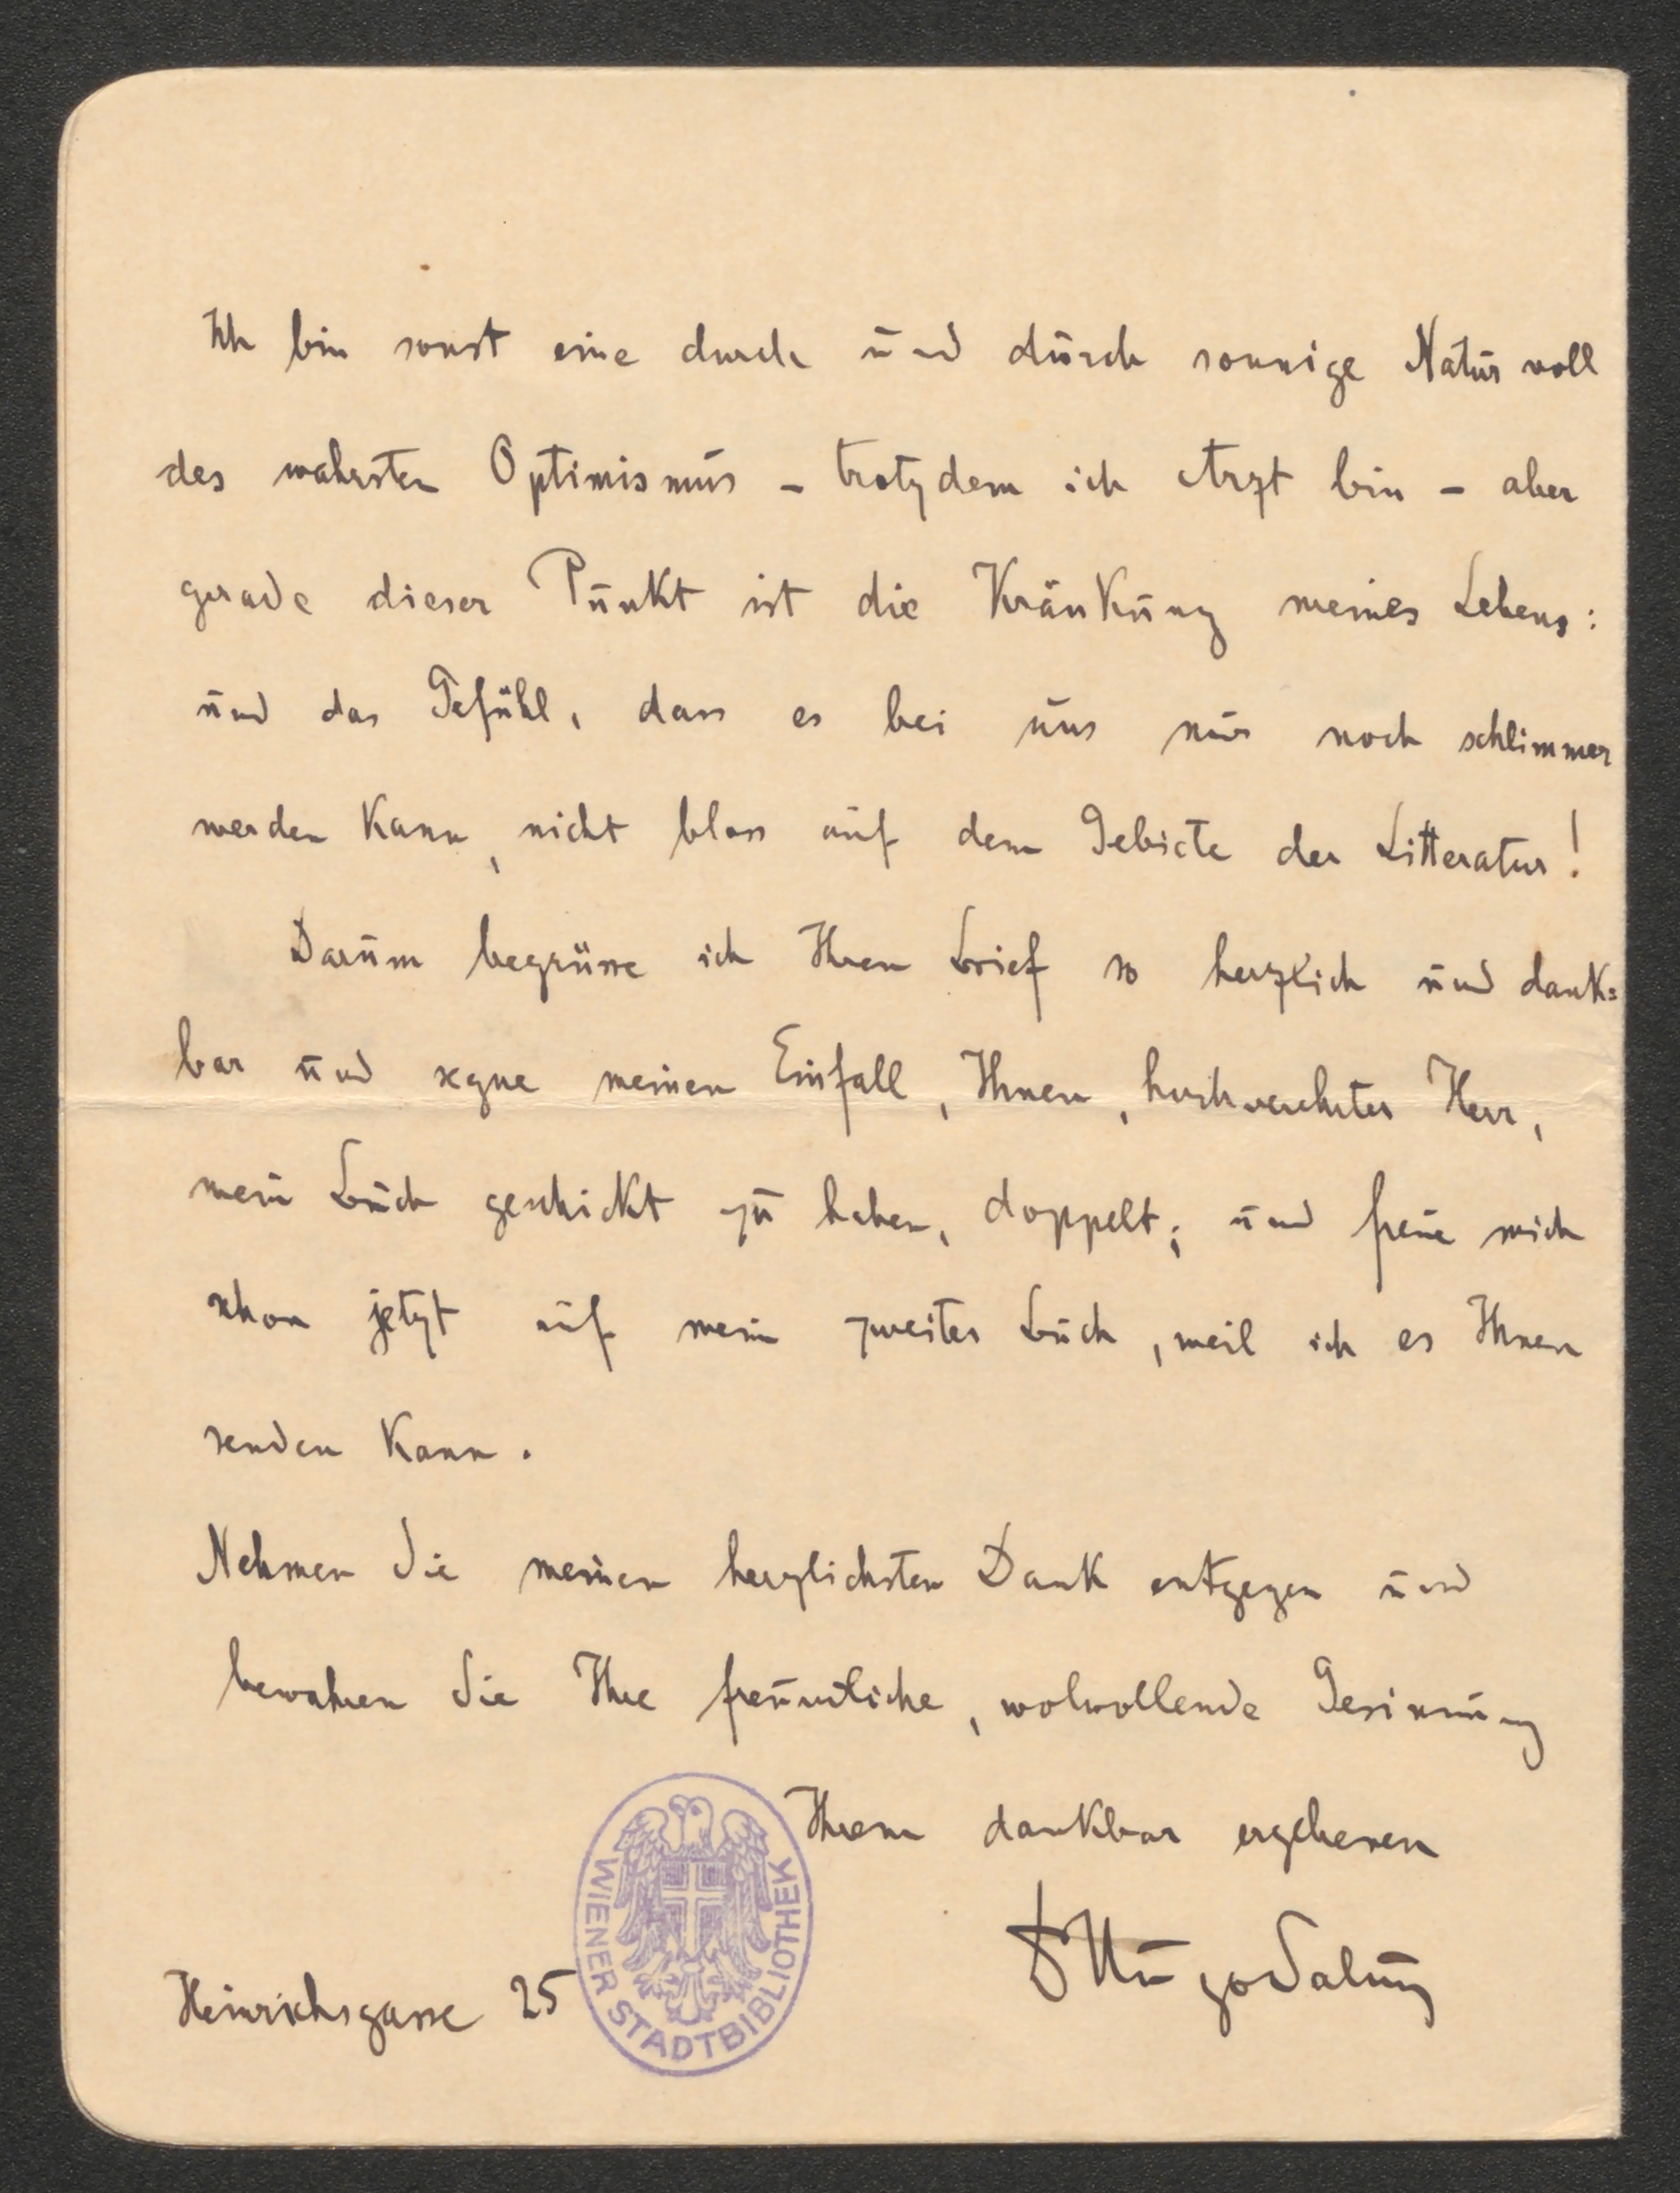 Ich bin sonst eine durch und durch sonnige Natur voll
des wahrsten Optimismus – trotzdem ich Arzt bin – aber
gerade dieser Punkt ist die Kränkung meines Lebens:
und das Gefühl, dass es bei uns nur noch schlimmer
werden kann, nicht bloss auf dem Gebiete der Litteratur!
Darum begrüsse ich Ihren Brief so herzlich und dank=
bar und segne meinen Einfall, Ihnen, hochverehrter Herr,
mein Buch geschickt zu haben, doppelt; und freue mich
schon jetzt auf mein zweites Buch, weil ich es Ihnen
senden kann.
Nehmen Sie meinen herzlichsten Dank entgegen und
bewahren Sie Ihre freundliche, wolwollende Gesinnung
Ihrem dankbar ergebenen
Dr Hugo Salus
Heinrichsgasse 25
WIENER STADTBIBLIOTHEK